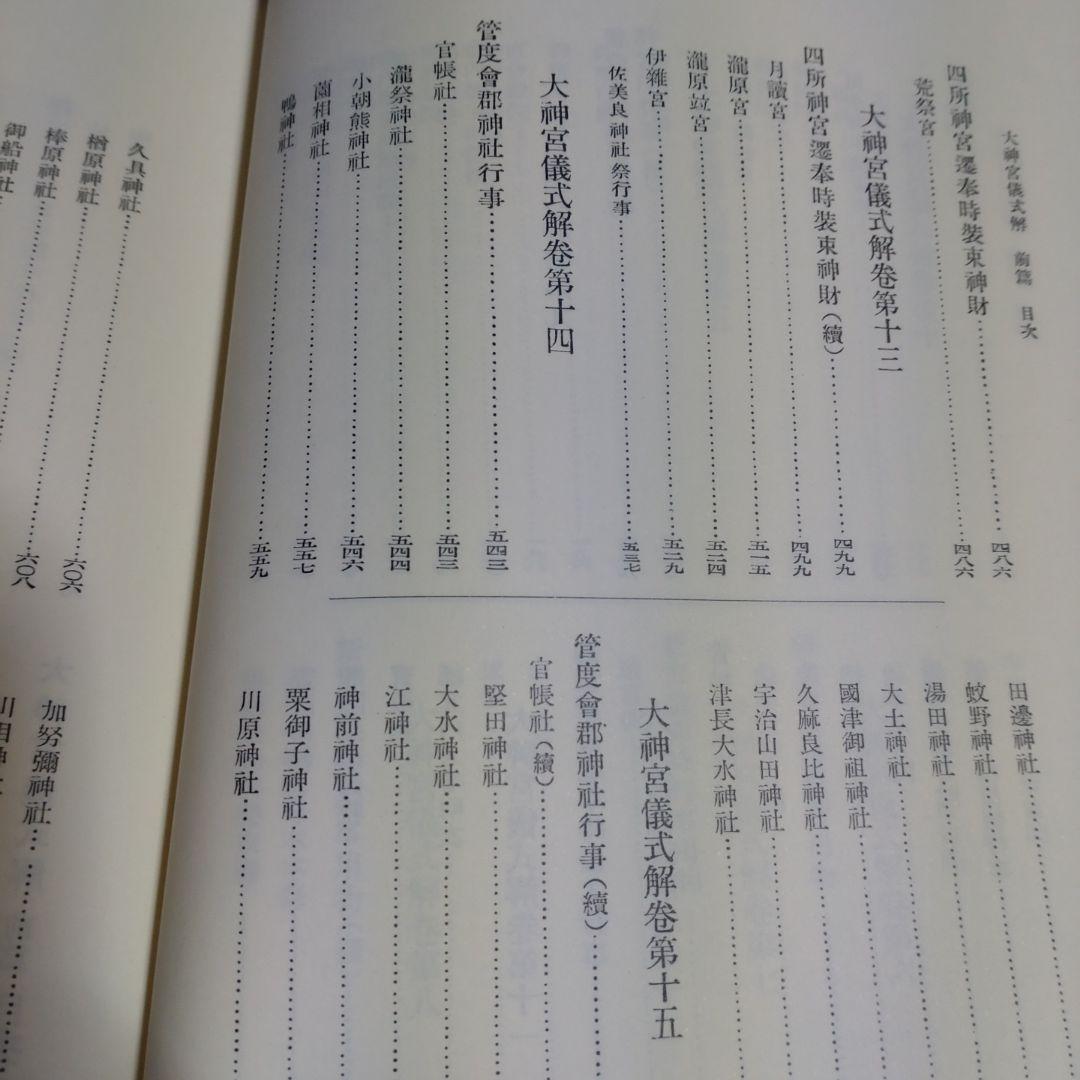 大神宮儀式解 前篇 目次
四所神宮遷奉時裝束神財……四八六
荒祭宮……四八六
大神宮儀式解卷第十三
四所神宮遷奉時裝束神財(續)……四九九
月讀宮……四九九
瀧原宮……五一五
瀧原竝宮……五二四
伊雜宮……五二九
佐美良神社祭行事……五三七
大神宮儀式解卷第十四
管度會郡神社行事……五四三
官帳社……五四三
瀧祭神社……五四四
小朝熊神社……五四六
薗相神社……五五七
鴨神社……五五九
田邊神社……
蚊野神社……
湯田神社……
大土神社……
國津御祖神社……
久麻良比神社……
宇治山田神社……
津長大水神社……
大神宮儀式解卷第十五
管度會郡神社行事(續)……
官帳社(續)……
堅田神社……
大水神社……
江神社……
神前神社……
粟御子神社……
川原神社……
久具神社……
楢原神社……六〇六
榛原神社……六〇八
御船神社
加努彌神社……
川相神社